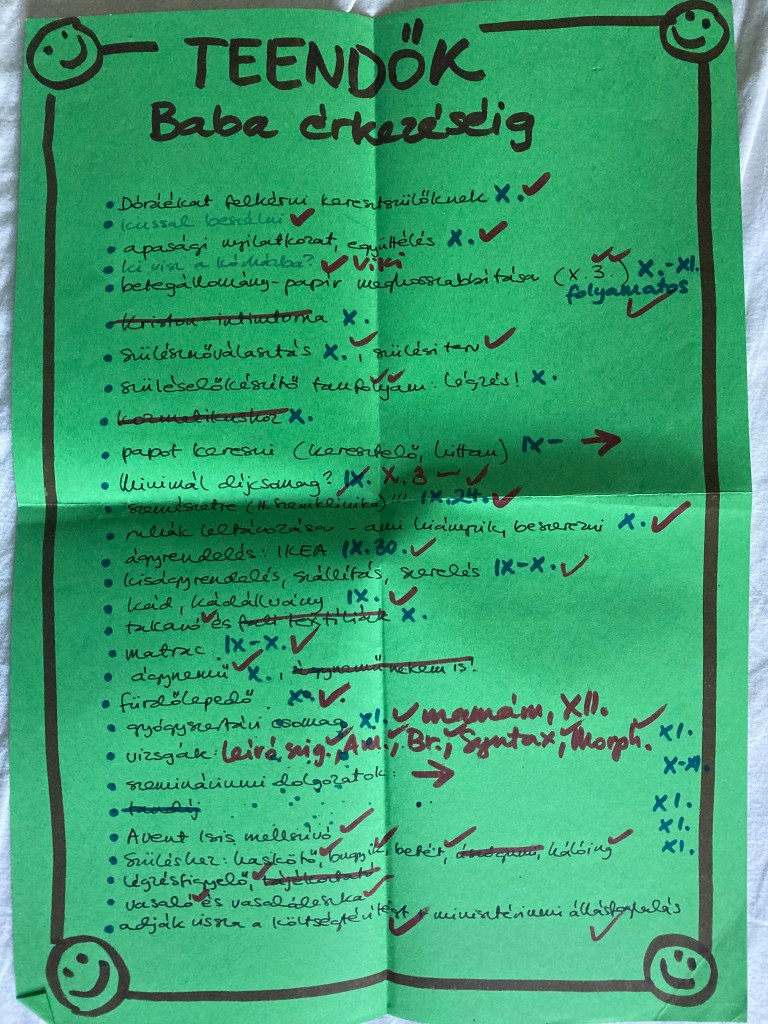 TEENDŐK
Baba érkezéséig
• Dóráékat felkérni keresztszülőknek X. ✓
• kussal beszélni ✓
• apasági nyilatkozat, együttélés X. ✓
• ki visz a kórházba? ✓ Viki
• betegállomány-papír meghosszabbítása (X. 3.) ✓✓ X.-XI.
folyamatos ✓
• Kriston intimtorna X.
• szülésznőválasztás X. ✓, szülési terv ✓
• szüléselőkészítő tanfolyam: légzés! X. ✓✓
• kozmetikushoz X.
• papot keresni (keresztelő, hittan) IX– →
• Minimál díjcsomag? IX. X. 3 – ✓
• szemészetre (H. Szemklinika)!!! IX. 24. ✓
• ruhák leltározása - ami hiányzik, beszerezni X. ✓
• ágyrendelés: IKEA IX. 30. ✓
• kiságyrendelés, szállítás, szerelés IX-X. ✓
• kád, kádállvány IX. ✓
• takaró ✓ és fali textíliák X.
• matrac IX-X. ✓
• ágynemű ✓ X., ágynemű nekem is!
• fürdőlepedő X. ✓
• gyógyszertári csomag XI. ✓ mamám, XII.
• vizsgák: leírás, sig. ✓, Am. ✓, Br. ✓, Syntax ✓, Morph. ✓ XI.
• szemináriumi dolgozatok: → X-XI.
• tandíj XI.
• Avent Isis mellszívó ✓ XI.
• Szüléshez: haskötő ✓, bugyik ✓, betét ✓, hálóing ✓ XI.
• légzésfigyelő ✓, tájékoztató
• vasaló ✓ és vasalódeszka ✓
• adják vissza a költségtérítést ✓ + minisztériumi állásfoglalás ✓